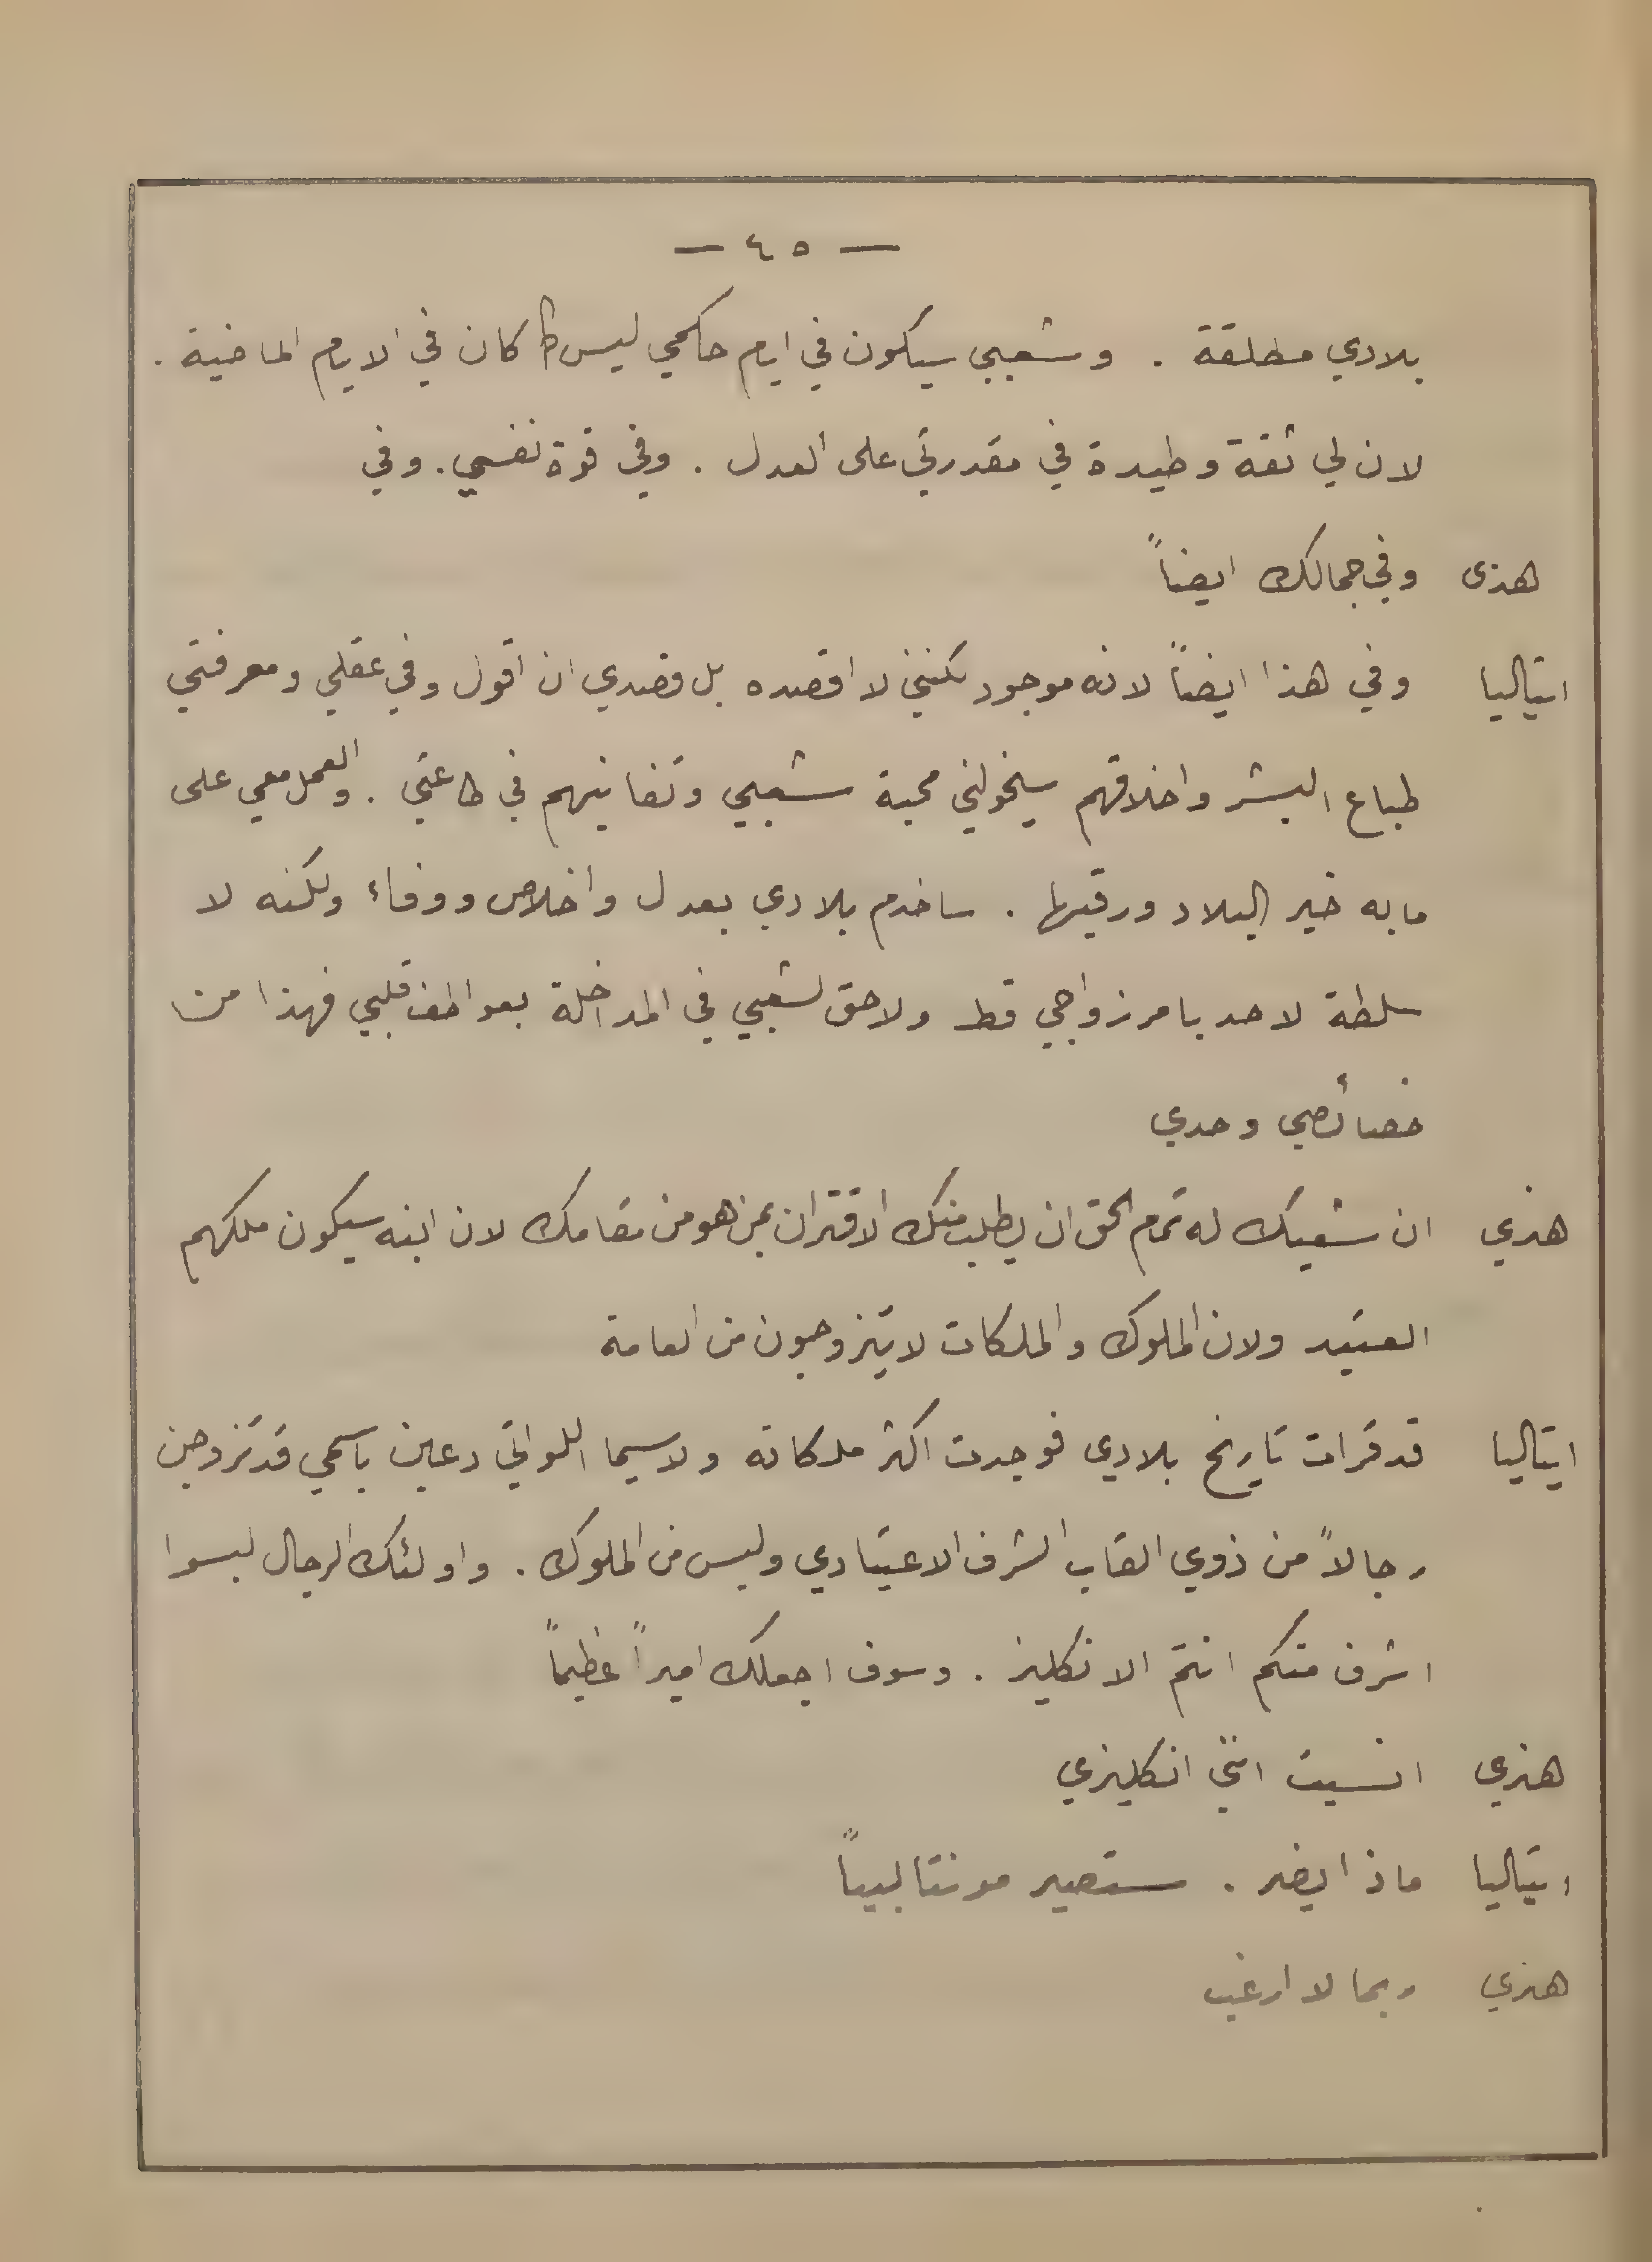 — ٤٥ —
بلادي مطلقة . وشعبي سيكون في ايام حاكمي ليس كما كان في الايام الماضية .
لان لي ثقة وطيدة في مقدرتي على العدل . وفي قوة نفسي . وفي
هنري وفي جمالك ايضاً
ايتاليا وفي هذا ايضاً لانه موجود لكنني لا اقصده بل قصدي ان اقول وفي عقلي ومعرفتي
طباع البشر واخلاقهم سيخولني محبة شعبي وتفانيهم في طاعتي . والعمل معي على
ما به خير البلاد ورقيها . ساخدم بلادي بعدل واخلاص ووفاء ولكنه لا
سلطة لاحد بامر زواجي قط ولا حق لشعبي في المداخلة بعواطف قلبي فهذا من
خصائصي وحدي
هنري ان شعبك له تمام الحق ان يطلب منك الاقتران بمن هو من مقامك لان ابنه سيكون ملكهم
العتيد ولان الملوك والملكات لا يتزوجون من العامة
ايتاليا قد قرات تاريخ بلادي فوجدت اكثر ملكاته ولاسيما اللواتي دعين باسمي قد تزوجن
رجالاً من ذوي القاب الشرف الاعتيادي وليس من الملوك . واولئك الرجال ليسوا
اشرف منكم انتم الانكليز . وسوف اجعلك اميراً عظيماً
هنري انسيت انني انكليزي
ايتاليا ماذا يضر . ستصير مونتالبياً
هنري ربما لا ارغب